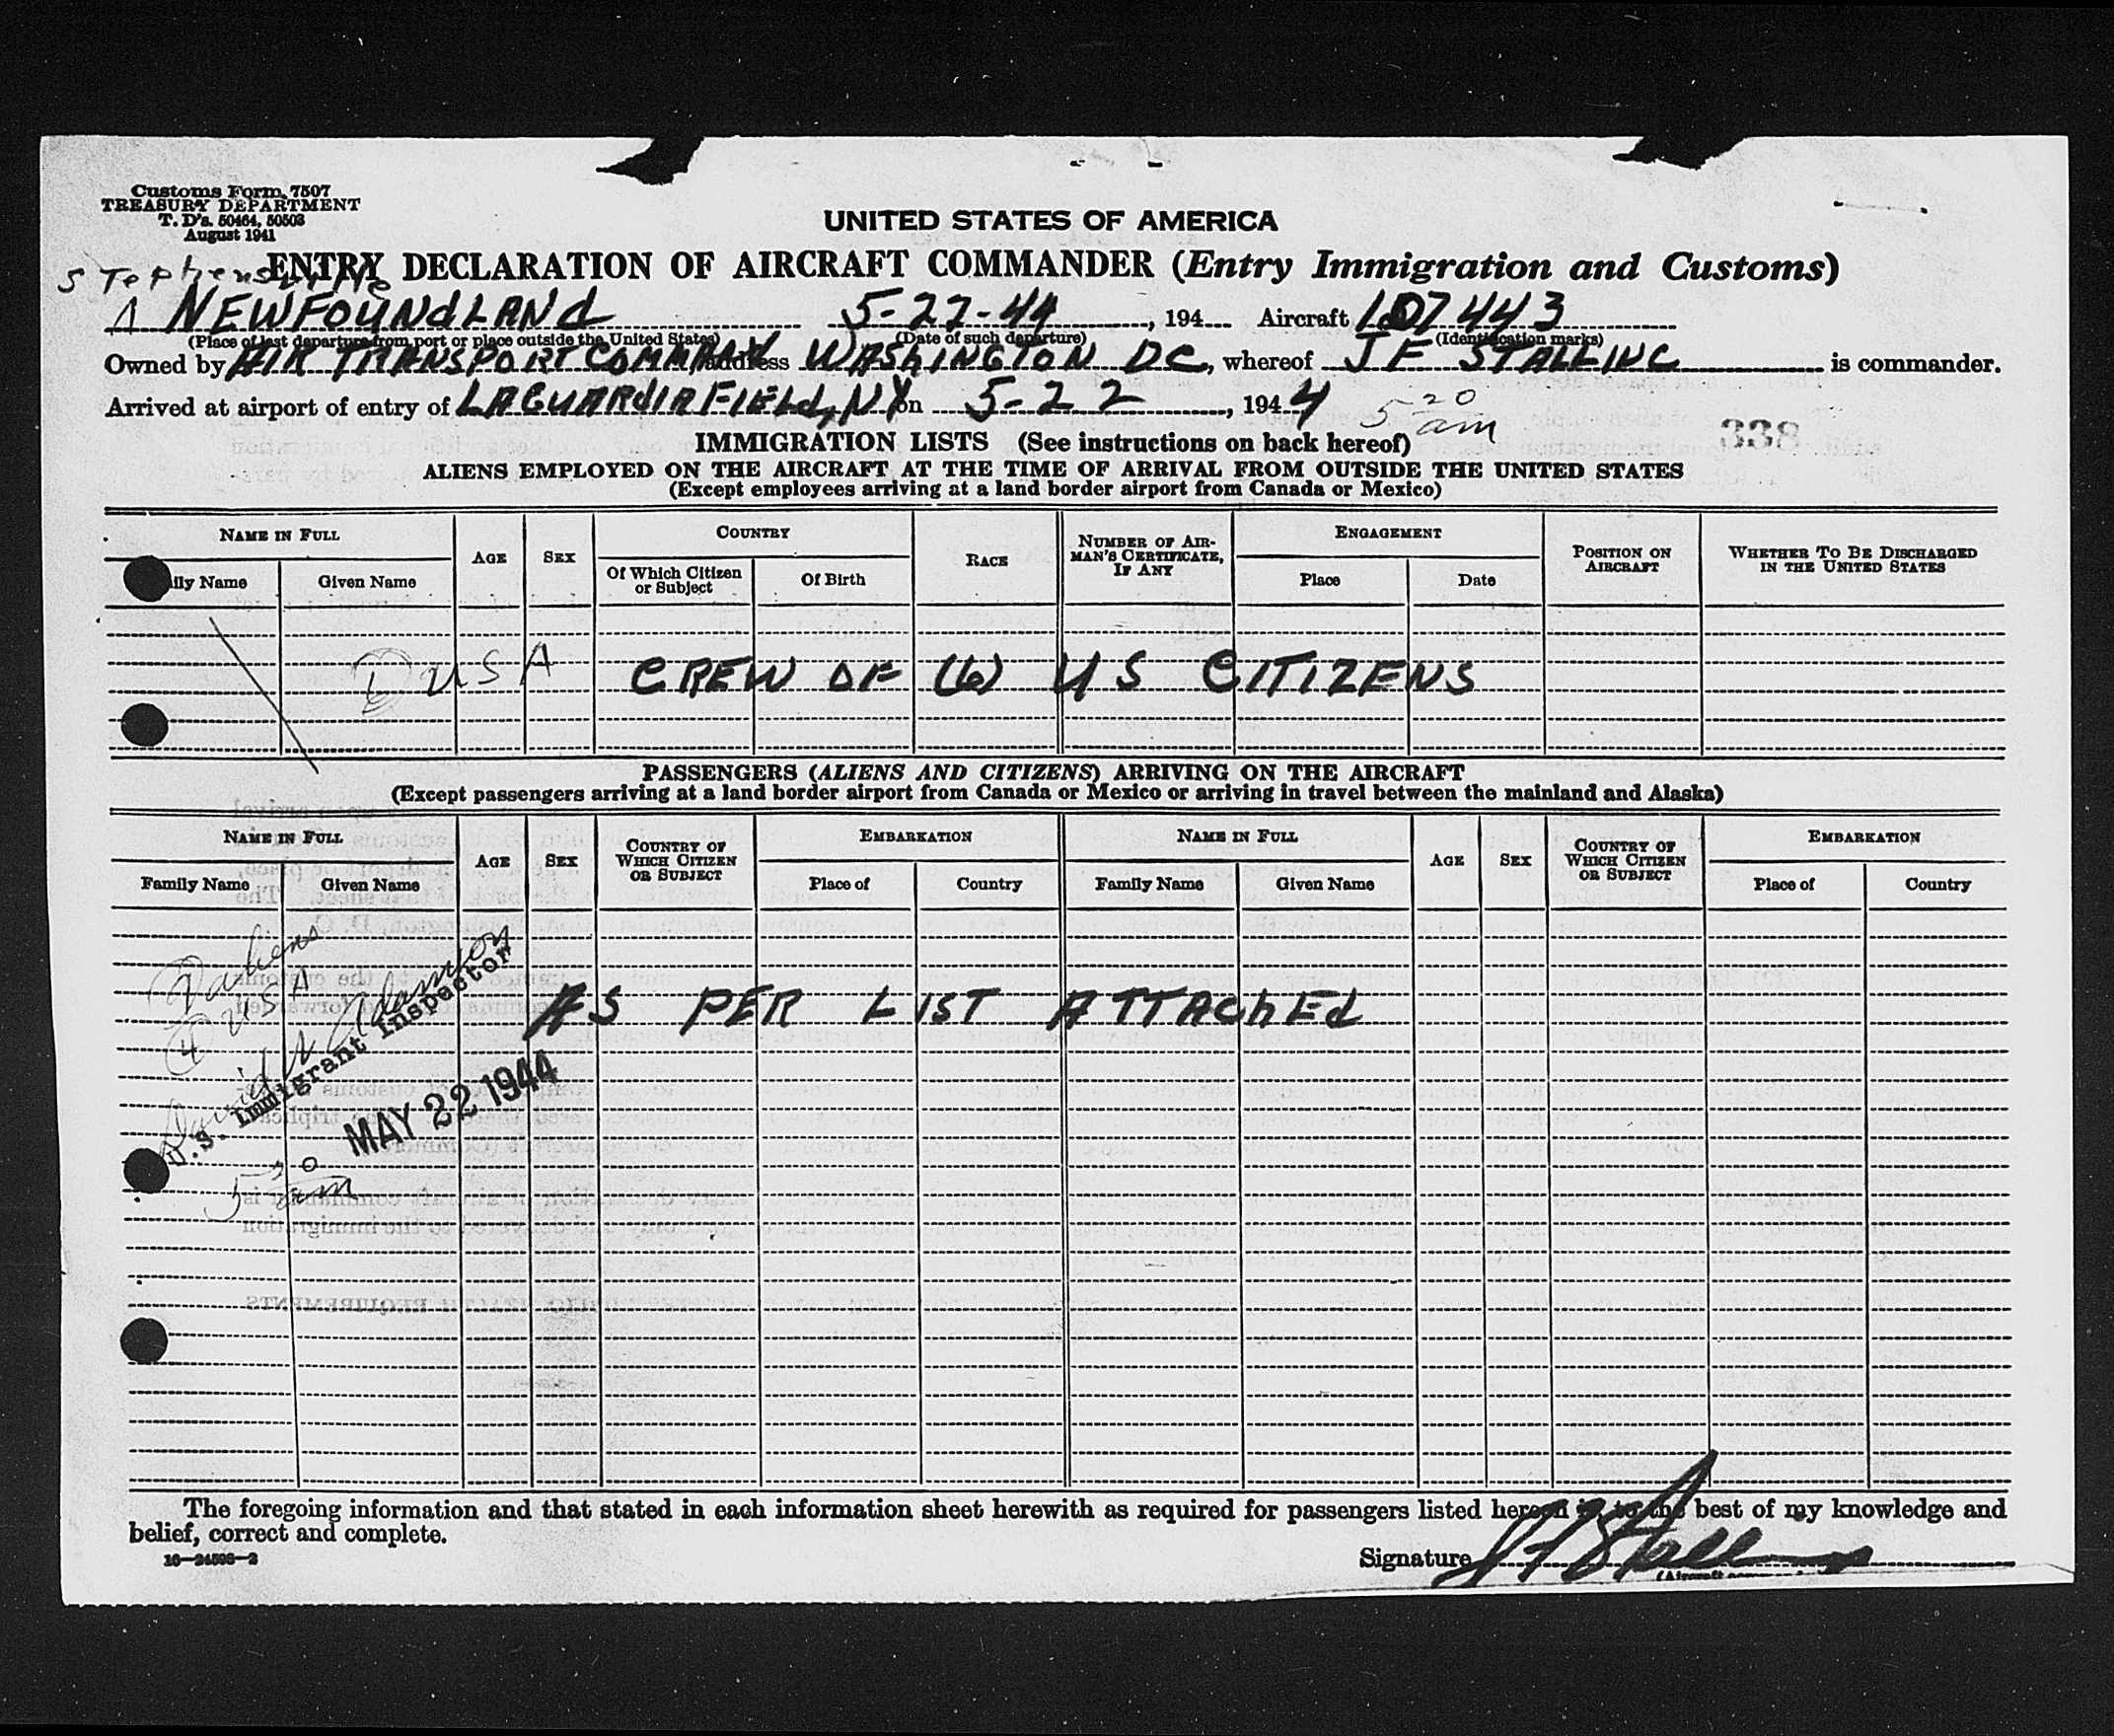 Customs Form 7507
TREASURY DEPARTMENT
T. D's. 50464, 50503
August 1941
UNITED STATES OF AMERICA
ENTRY DECLARATION OF AIRCRAFT COMMANDER (Entry Immigration and Customs)
Stephensville
NEWFOUNDLAND 5-22-44, 194 Aircraft 107443
(Place of last departure from port or place outside the United States) (Date of such departure) (Identification marks)
Owned by AIR TRANSPORT COMMAND address WASHINGTON DC, whereof J F STALLING is commander.
Arrived at airport of entry of LAGUARDIA FIELD, NY on 5-22, 1944 5 20 am
IMMIGRATION LISTS (See instructions on back hereof)
ALIENS EMPLOYED ON THE AIRCRAFT AT THE TIME OF ARRIVAL FROM OUTSIDE THE UNITED STATES
(Except employees arriving at a land border airport from Canada or Mexico)
NAME IN FULL AGE SEX COUNTRY RACE NUMBER OF AIRMAN'S CERTIFICATE, IF ANY ENGAGEMENT POSITION ON AIRCRAFT WHETHER TO BE DISCHARGED IN THE UNITED STATES
ily Name Given Name Of Which Citizen or Subject Of Birth Place Date
USA CREW OF (6) US CITIZENS
PASSENGERS (ALIENS AND CITIZENS) ARRIVING ON THE AIRCRAFT
(Except passengers arriving at a land border airport from Canada or Mexico or arriving in travel between the mainland and Alaska)
NAME IN FULL AGE SEX COUNTRY OF WHICH CITIZEN OR SUBJECT EMBARKATION NAME IN FULL AGE SEX COUNTRY OF WHICH CITIZEN OR SUBJECT EMBARKATION
Family Name Given Name Place of Country Family Name Given Name Place of Country
aliens
USA
AS PER LIST ATTACHED
David Adamson
U.S. Immigrant Inspector
MAY 22 1944
5 30 am
The foregoing information and that stated in each information sheet herewith as required for passengers listed hereon is to the best of my knowledge and
belief, correct and complete.
16—24598-2
Signature J F Stalling